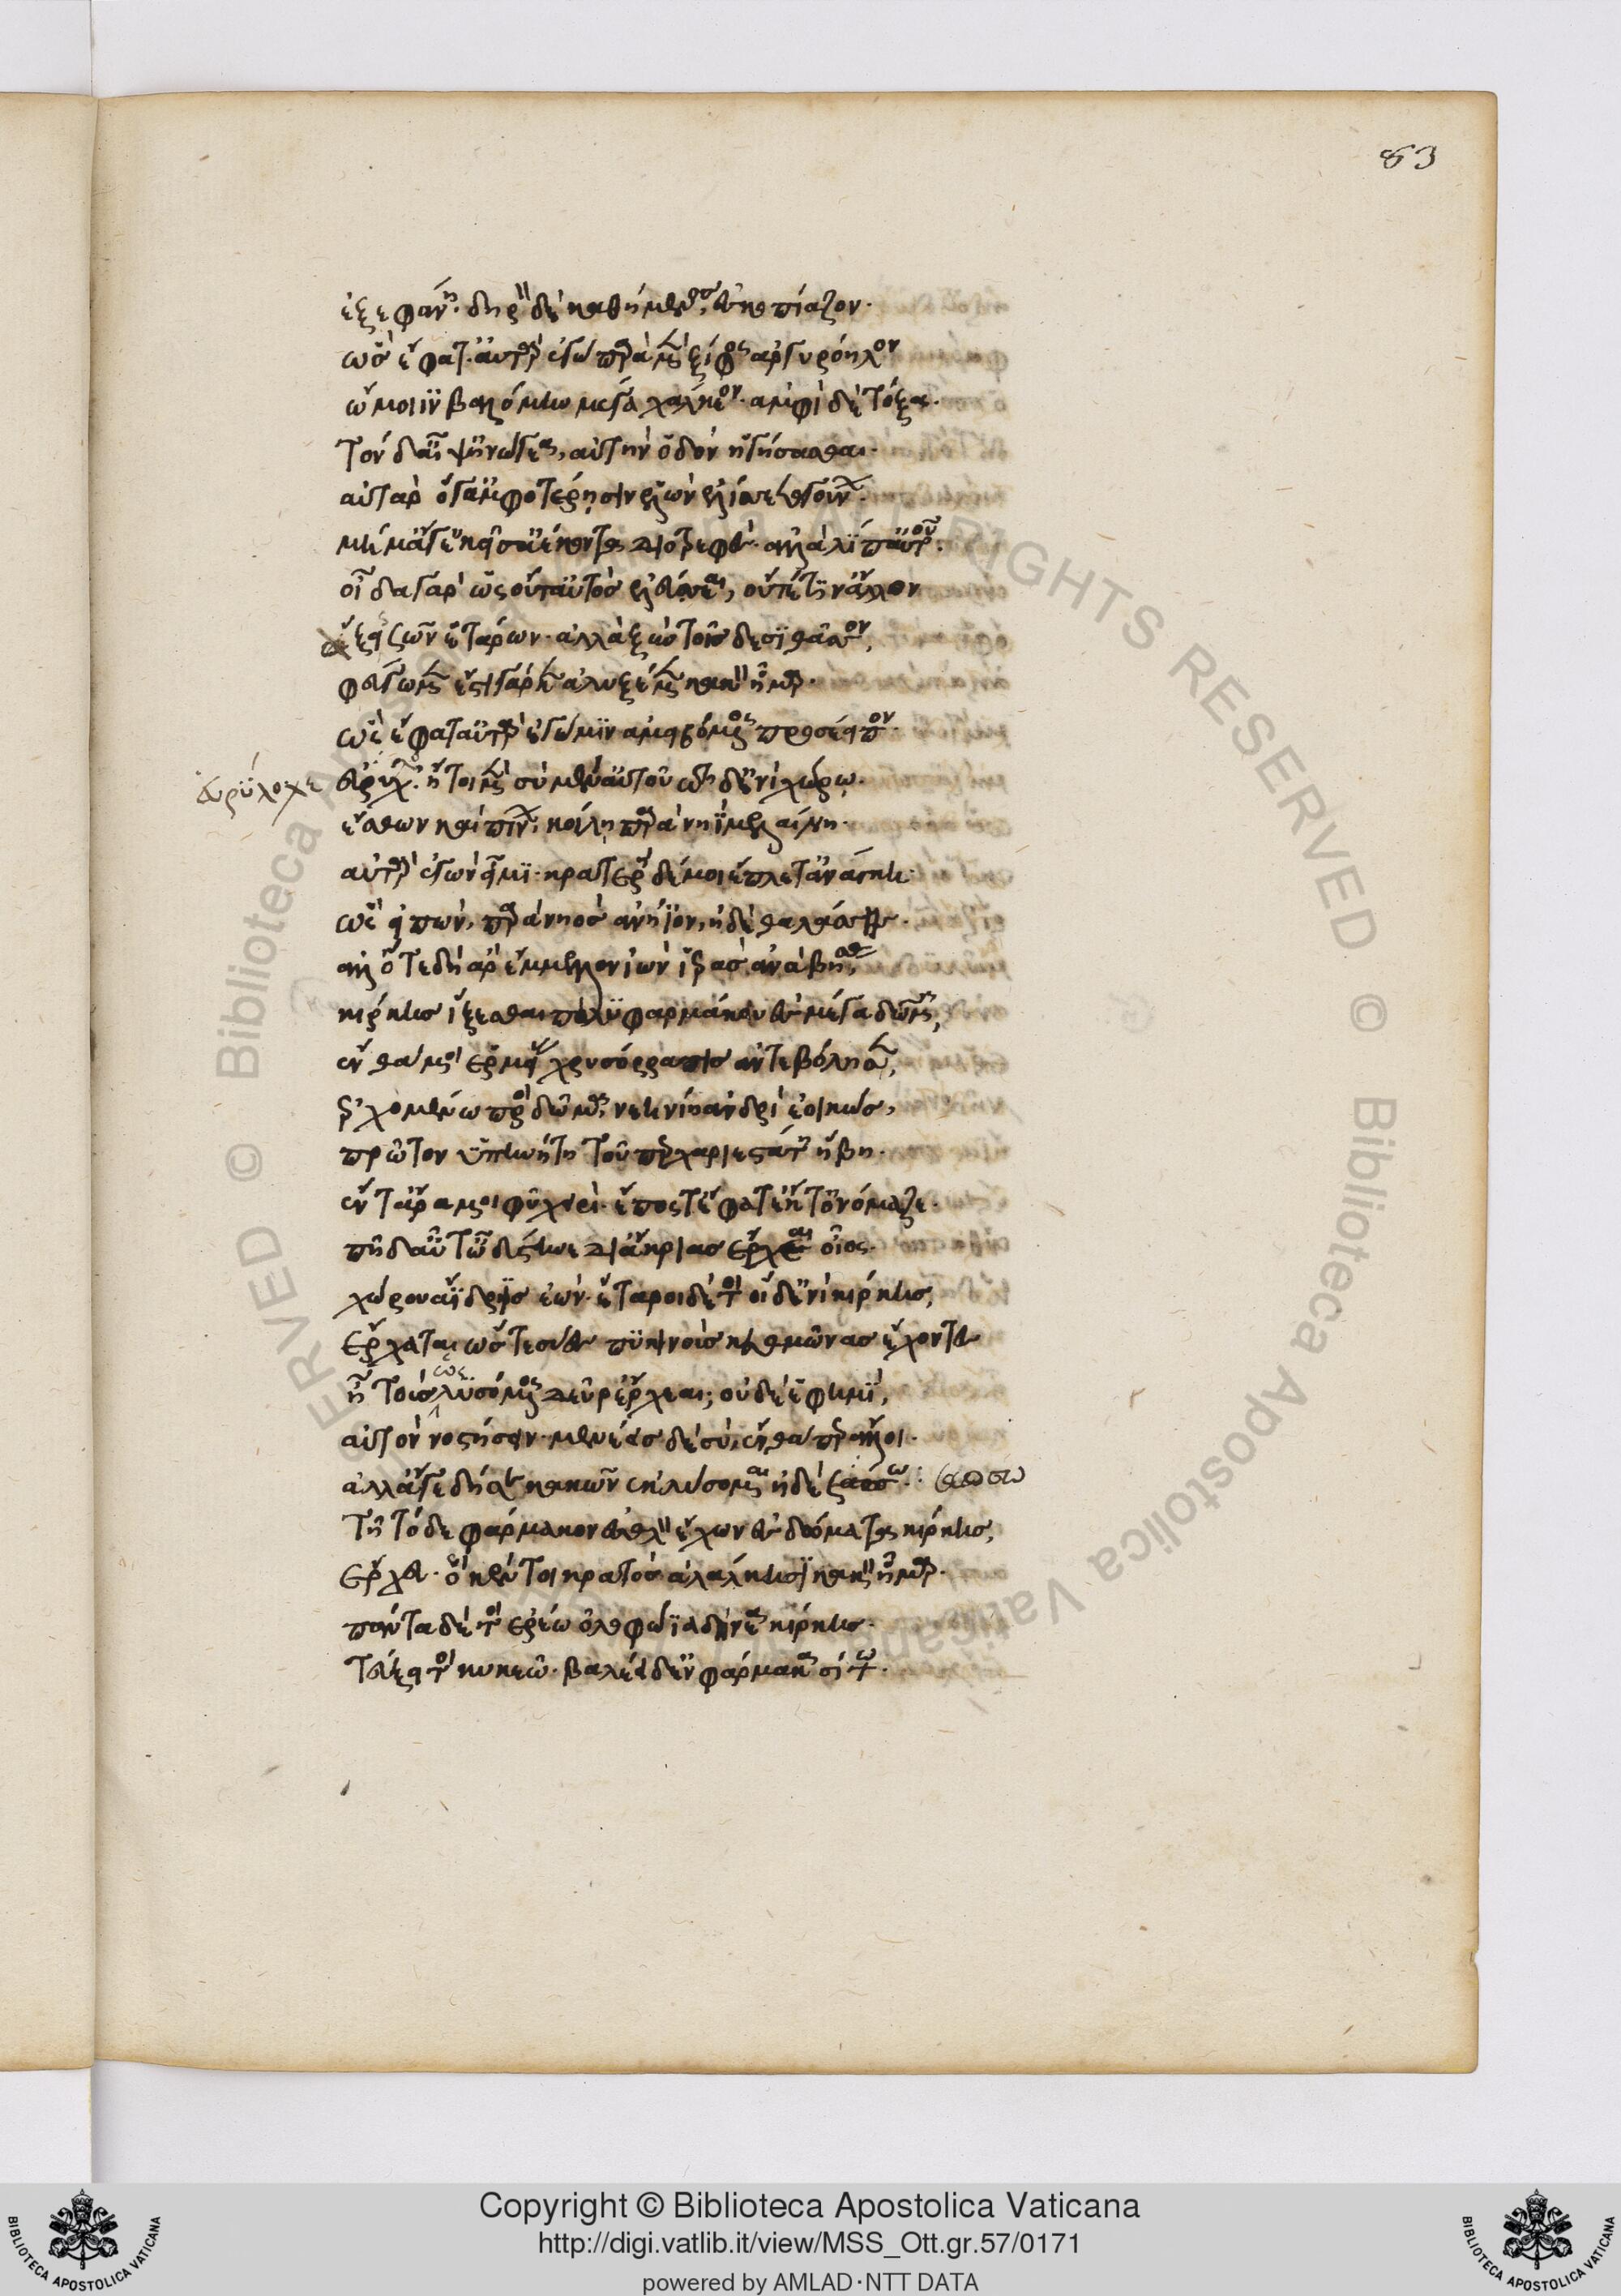 ἐξεφάνη· δηρὸν δὲ καθήμενος, ἐσκοπίαζον·
ὡς ἔφατ· αὐτὰρ ἐγὼ περὶ μὲν ξίφος ἀργυρόηλον
ὤμοιϊν βαλόμην μέγα χάλκεον· ἀμφὶ δὲ τόξα·
τὸν δ' αἶψ' ἠνώγεα, αὐτὴν ὁδὸν ἡγήσασθαι·
αὐτὰρ ὅγ' ἀμφοτέρησιν ἑλὼν ἐλίσσετο γούνων·
μή μ' ἄγε κεῖσ' ἀέκοντα διοτρεφὲς· ἀλλὰ λίπ' αὐτοῦ·
οἶδα γὰρ ὡς οὔτ' αὐτὸς ἐλεύσεαι, οὔτέ τιν' ἄλλον
ἄξεις σῶν ἑτάρων· ἀλλὰ ξὺν τοῖσδεσι θᾶσσον,
φεύγωμεν ἔτι γάρ κεν ἀλύξαιμεν κακὸν ἦμαρ·
ὡς ἔφατ' αὐτὰρ ἐγώ μιν ἀμειβόμενος προσέειπον·
εὐρύλοχε
εὐρύλοχ· ἤτοι μὲν σὺ μέν' αὐτοῦ τῶδ' ἐνὶ χώρῳ·
ἔσθων καὶ πίνων, κοίλῃ παρὰ νηῒ μελαίνη·
αὐτὰρ ἐγὼν εἶμι· κρατερὴ δέ μοι ἔπλετ' ἀνάγκη·
ὡς εἰπὼν, παρὰ νηὸς ἀνήϊον, ἠδὲ θαλάσσης·
ἀλλ' ὅτε δὴ ἄρ' ἔμμελλον ἰὼν ἱερὰς ἀνὰ βήσσας,
κίρκης ἵξεσθαι πολυφαρμάκου ἐς μέγα δῶμα,
ἔνθα μοι ἑρμείας χρυσόρραπις ἀντεβόλησεν,
ἐρχομένω πρὸς δῶμα, νεηνίη ἀνδρὶ ἐοικὼς,
πρῶτον ὑπηνήτη τοῦ περ χαριεστάτη ἥβη·
ἔν τ' ἄρα μοι φῦ χειρὶ· ἔπος τ' ἔφατ' ἔκ τ' ὀνόμαζε·
πῆ δ' αὖτ' ὦ δύστηνε δι' ἄκριας ἔρχεαι οἶος·
χώρου ἄϊδρις ἐών· ἕταροι δέ τοι οἵδ' ἐνὶ κίρκης,
ἔρχαται ὥστε σύες πυκινοὺς κευθμῶνας ἔχοντες
ἦ τοὺς λυσόμενος δεῦρ' ἔρχεαι; οὐδέ σε φημὶ,
αὐτὸν νοστήσειν· μενέεις δὲ σὺ, ἔνθα περ ἄλλοι·
ἀλλ' ἄγε δή σε κακῶν ἐκλύσομαι ἠδὲ σαώσω· : σαώσω
τῆ τόδε φάρμακον ἐσθλὸν ἔχων ἐς δώματα κίρκης,
ἔρχευ· ὅ κέν τοι κρατὸς ἀλάλκησι κακὸν ἦμαρ·
πάντα δέ τοι ἐρέω ὀλοφώϊα δήνεα κίρκης·
τεύξει τοι κυκεῶ· βαλέει δ' ἐν φάρμακα σίτω·
83
Copyright © Biblioteca Apostolica Vaticana
http://digi.vatlib.it/view/MSS_Ott.gr.57/0171
powered by AMLAD·NTT DATA